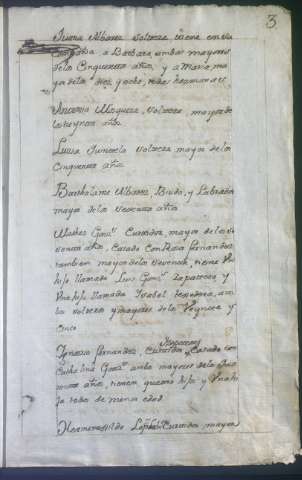 3
Juana Albarez Soltera tiene en su
Compañia a Barbara, ambas mayores
de los Cinquenta años, y a Maria ma
yor de los diez y ocho, todas hermanas
Antonia Mosquera, Soltera, mayor de
los treynta años
Luisa Soltera mayor de los
Cinquenta años
Bartholome Albarez, Biudo, y Labrador
mayor de los Sesenta años
Matheo Gonz.z Curtidor, mayor de los se
senta años, Casado Con Rosa Fernandez
tambien mayor de los Sesenta, tiene Un
hijo llamado Luis Gonz.z Zapatero, y
Una hija llamada Isabel texedora, am
bos solteros y mayores de los Veynte y
Cinco
Ignacio Fernandez, Curtidor y Casado con
Cathalina Gonz.z ambos mayores de los Qua
renta años, tienen quatro hijos y Una hi
ja todos de menor edad
Hermenexildo Curtidor mayor